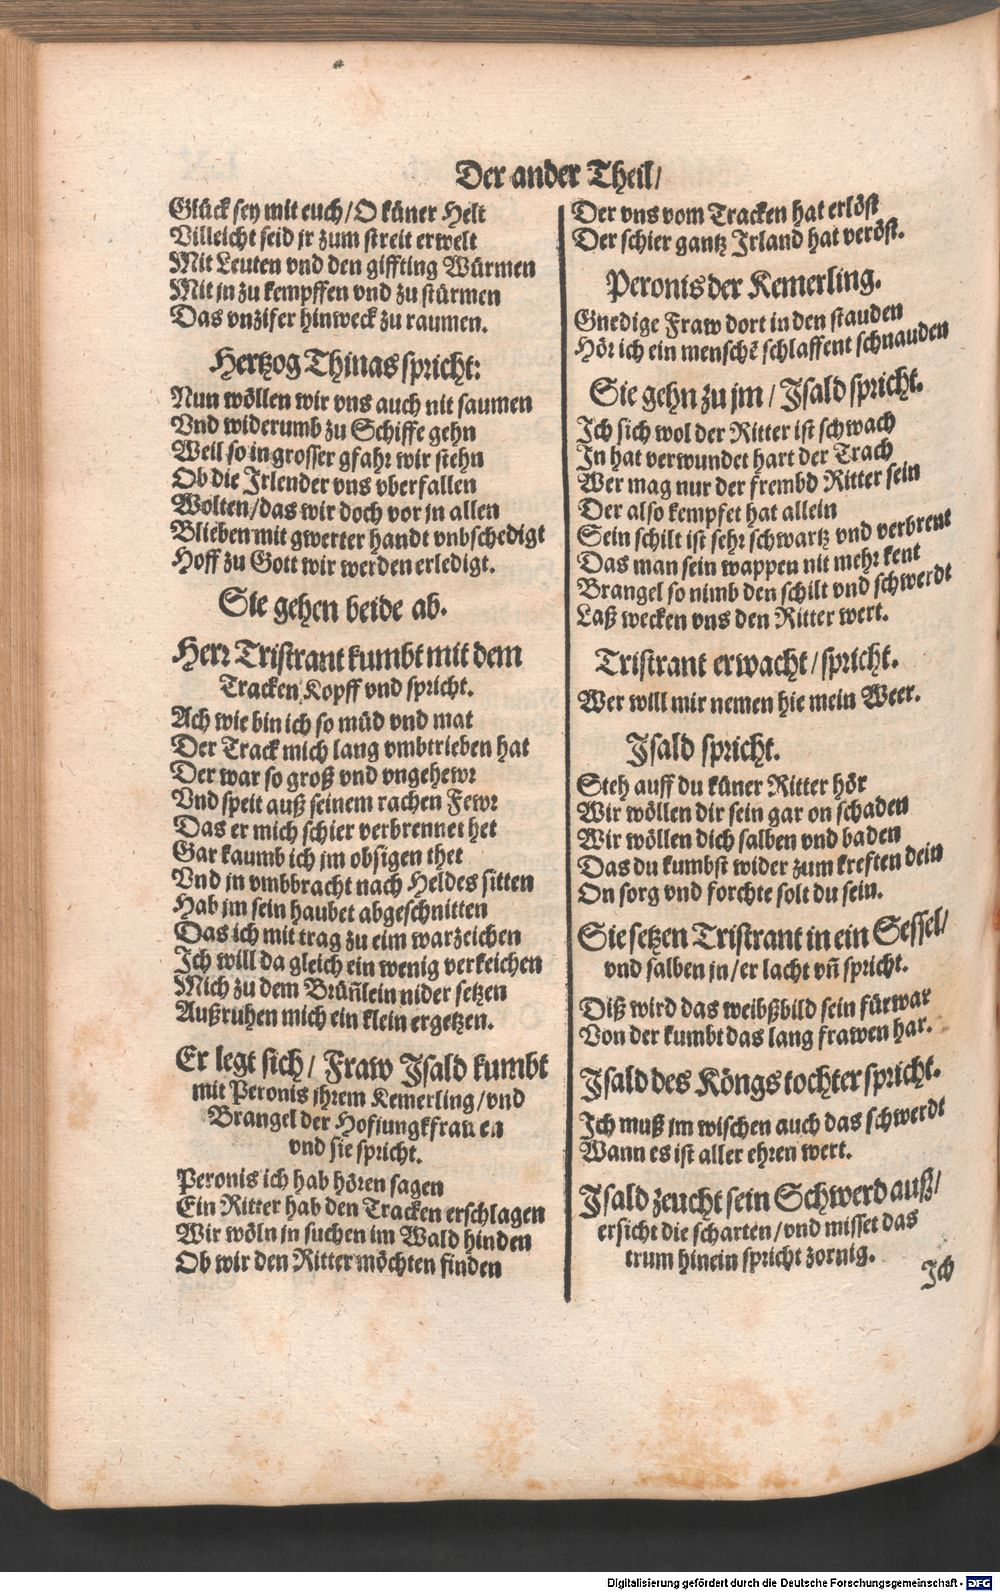 Der ander Theil/
Glück sey mit euch/O küner Helt
Villeicht seid jr zum streit erwelt
Mit Leuten vnd den giffting Würmen
Mit jn zu kempffen vnd zu stürmen
Das vnzifer hinweck zu raumen.
Hertzog Thinas spricht:
Nun wöllen wir vns auch nit saumen
Vnd widerumb zu Schiffe gehn
Weil so in grosser gfahr wir stehn
Ob die Irlender vns vberfallen
Wolten/das wir doch vor jn allen
Blieben mit gwerter handt vnbschedigt
Hoff zu Gott wir werden erledigt.
Sie gehen beide ab.
Herr Tristrant kumbt mit dem
Tracken Kopff vnd spricht.
Ach wie bin ich so müd vnd mat
Der Track mich lang vmbtrieben hat
Der war so groß vnd vngehewr
Vnd speit auß seinem rachen Fewr
Das er mich schier verbrennet het
Gar kaumb ich jm obsigen thet
Vnd jn vmbbracht nach Heldes sitten
Hab jm sein haubet abgeschnitten
Das ich mit trag zu eim warzeichen
Ich will da gleich ein wenig verkeichen
Mich zu dem Brüñlein nider setzen
Außruhen mich ein klein ergetzen.
Er legt sich/ Fraw Isald kumbt
mit Peronis ihrem Kemerling/vnd
Brangel der Hofjungkfrauen
vnd sie spricht.
Peronis ich hab hören sagen
Ein Ritter hab den Tracken erschlagen
Wir wöln jn suchen im Wald hinden
Ob wir den Ritter möchten finden
Der vns vom Tracken hat erlöst
Der schier gantz Irland hat veröst.
Peronis der Kemerling.
Gnedige Fraw dort in den stauden
Hör ich ein menschẽ schlaffent schnauden
Sie gehn zu jm/ Isald spricht.
Ich sich wol der Ritter ist schwach
In hat verwundet hart der Trach
Wer mag nur der frembd Ritter sein
Der also kempfet hat allein
Sein schilt ist sehr schwartz vnd verbrent
Das man sein wappen nit mehr kent
Brangel so nimb den schilt vnd schwerdt
Laß wecken vns den Ritter wert.
Tristrant erwacht/spricht.
Wer will mir nemen hie mein Weer.
Isald spricht.
Steh auff du küner Ritter hör
Wir wöllen dir sein gar on schaden
Wir wöllen dich salben vnd baden
Das du kumbst wider zum kreften dein
On sorg vnd forchte solt du sein.
Sie setzen Tristrant in ein Sessel/
vnd salben jn/er lacht vñ spricht.
Diß wird das weibßbild sein fürwar
Von der kumbt das lang frawen har.
Isald des Köngs tochter spricht.
Ich muß jm wischen auch das schwerdt
Wann es ist aller ehren wert.
Isald zeucht sein Schwerd auß/
ersicht die scharten/vnd misset das
trum hinein spricht zornig.
Ich
Digitalisierung gefördert durch die Deutsche Forschungsgemeinschaft - DFG